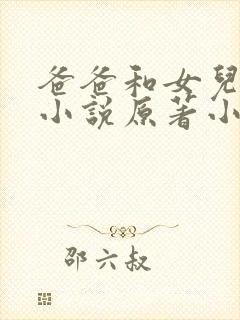 爸爸和女兒
小說原著小
邵六叔